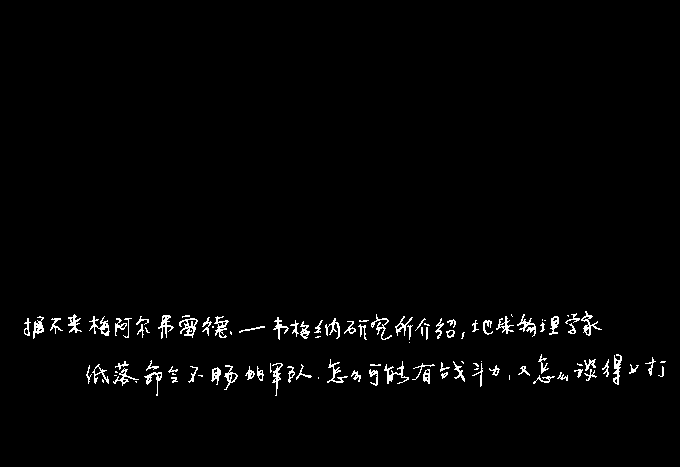 据不来梅阿尔弗雷德.一韦格纳研究所介绍,地球物理学家
低落、命令不畅的军队.怎么可能有战斗力,又怎么谈得上打